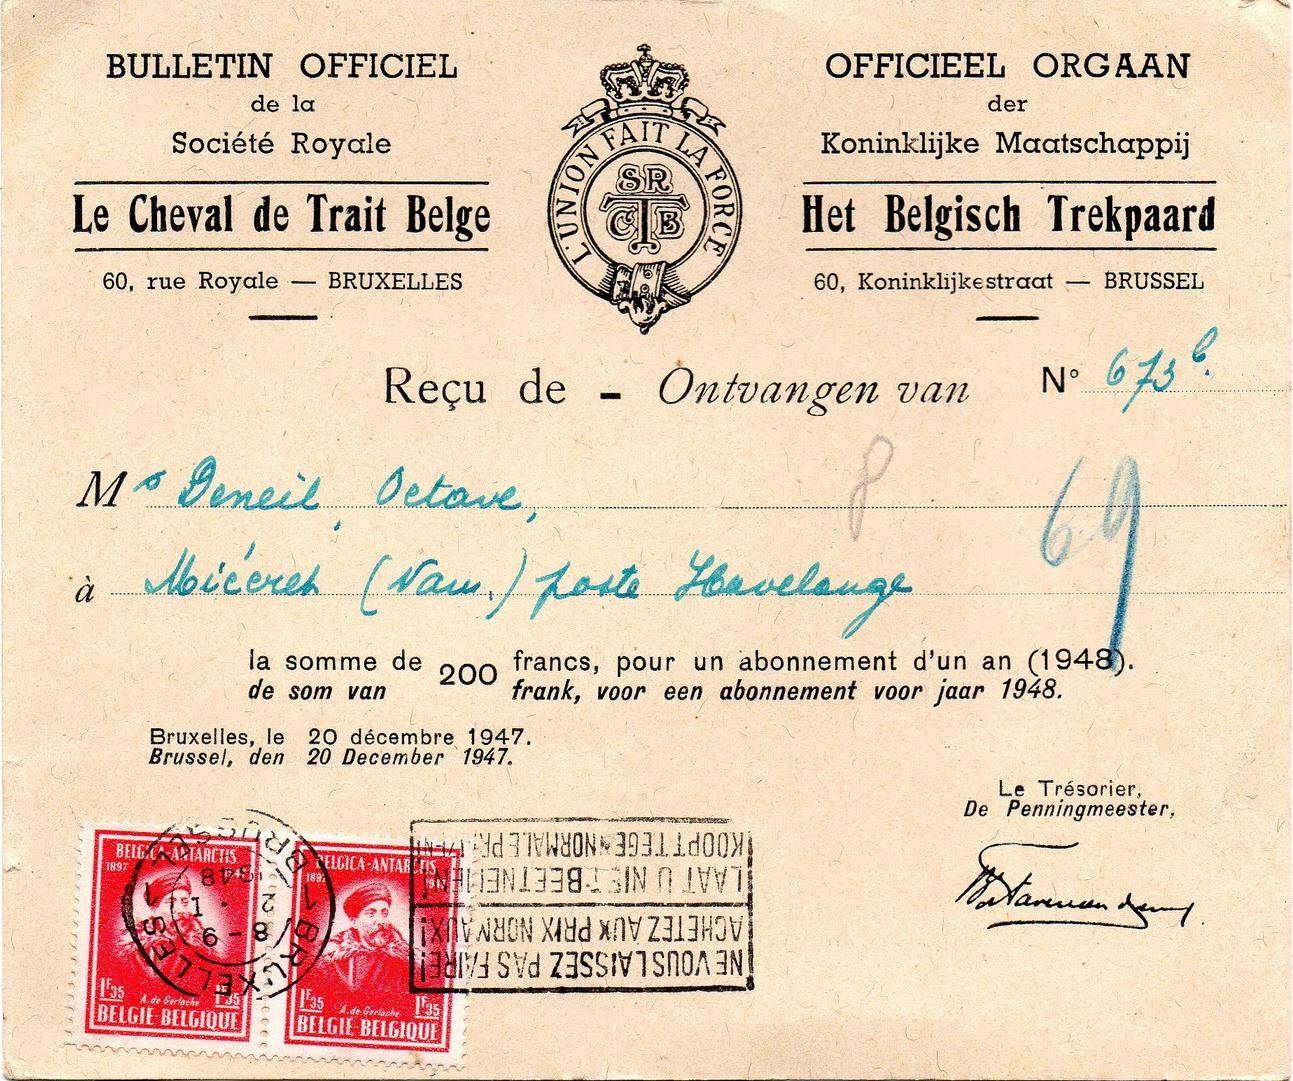 BULLETIN OFFICIEL
de la
Société Royale
Le Cheval de Trait Belge
60, rue Royale — BRUXELLES
L'UNION FAIT LA FORCE
SR
CTB
OFFICIEEL ORGAAN
der
Koninklijke Maatschappij
Het Belgisch Trekpaard
60, Koninklijkestraat — BRUSSEL
Reçu de - Ontvangen van
N° 673 b.
8
69
Mr Deneil, Octave,
à Miécret (Nam.) poste Havelange
la somme de 200 francs, pour un abonnement d'un an (1948).
de som van frank, voor een abonnement voor jaar 1948.
Bruxelles, le 20 décembre 1947.
Brussel, den 20 December 1947.
Le Trésorier,
De Penningmeester,
BELGICA-ANTARCTIS
1897 1947
A. de Gerlache
1F35 1F35
BELGIE-BELGIQUE
BELGICA-ANTARCTIS
1897 19
A. de Gerlache
1F35 1F35
BELGIE-BELGIQUE
1 BRUXELLES 1
1 BRUSSEL 1
8-9
2 . 1
1948
NE VOUS LAISSEZ PAS FAIRE!
ACHETEZ AUX PRIX NORMAUX!
LAAT U NIET BEETNEMEN!
KOOPT TEGEN NORMALE PRIJZEN!